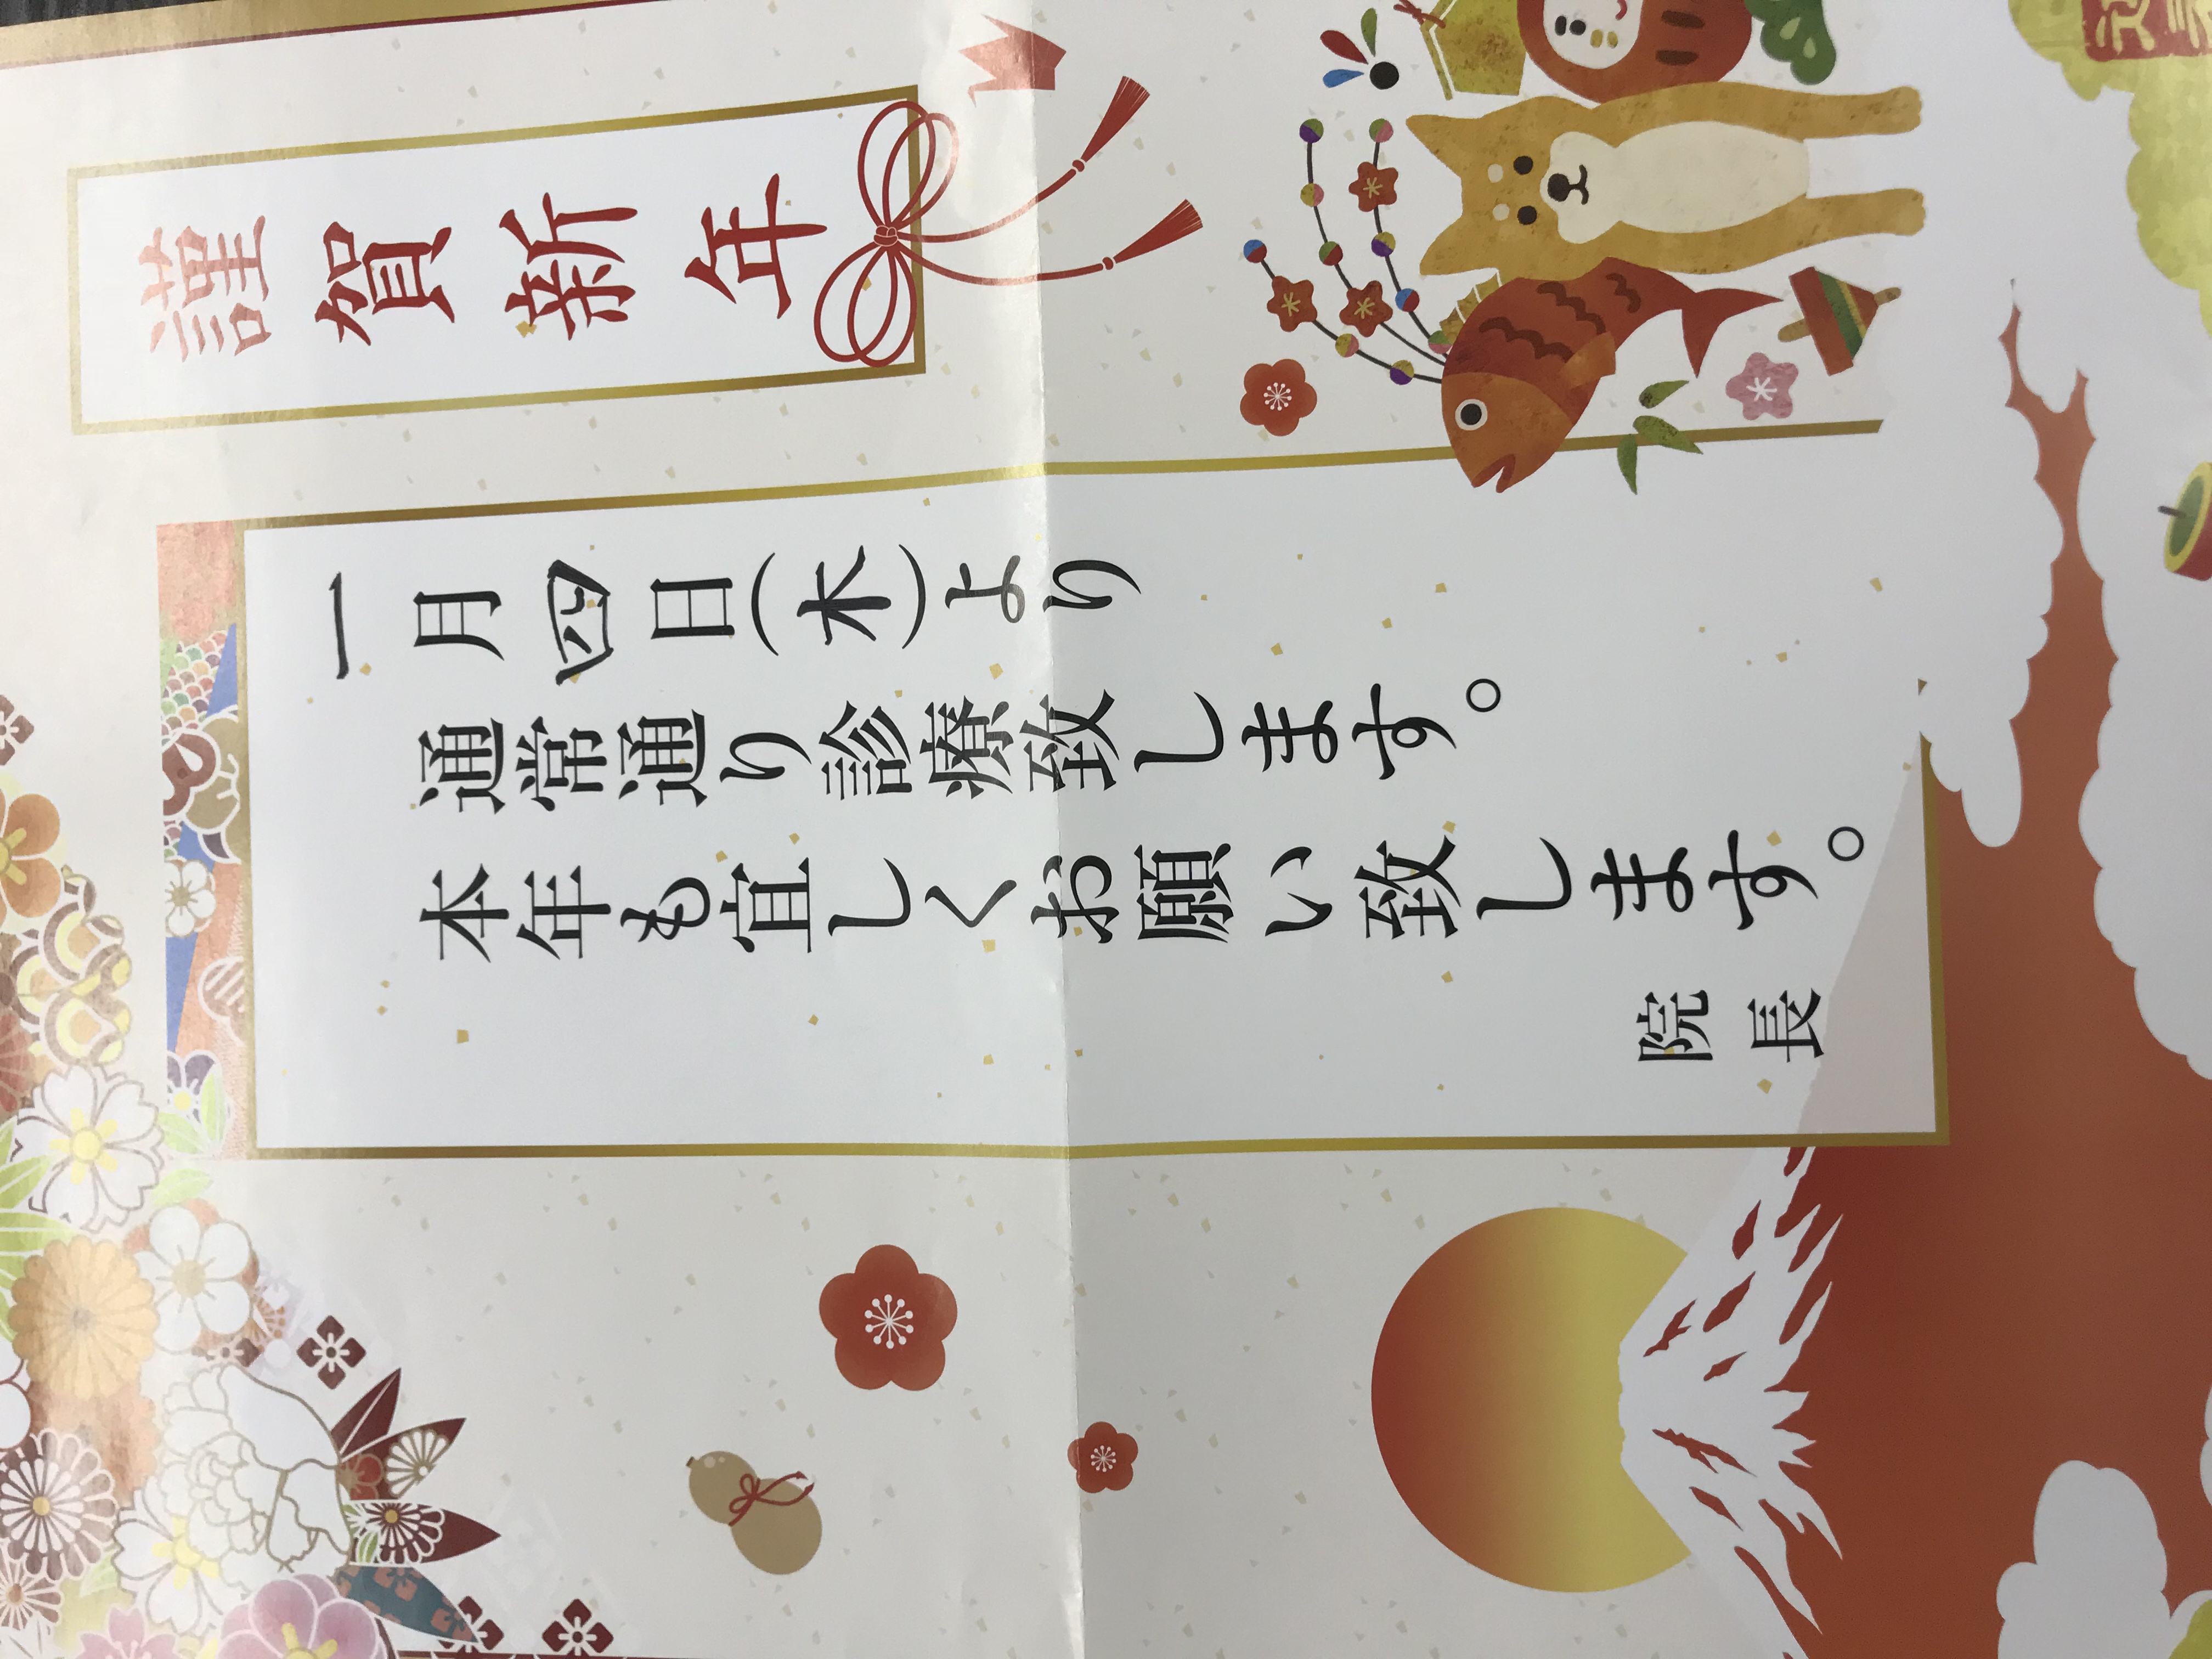 謹賀新年
一月四日(木)より
通常通り診療致します。
本年も宜しくお願い致します。
院長